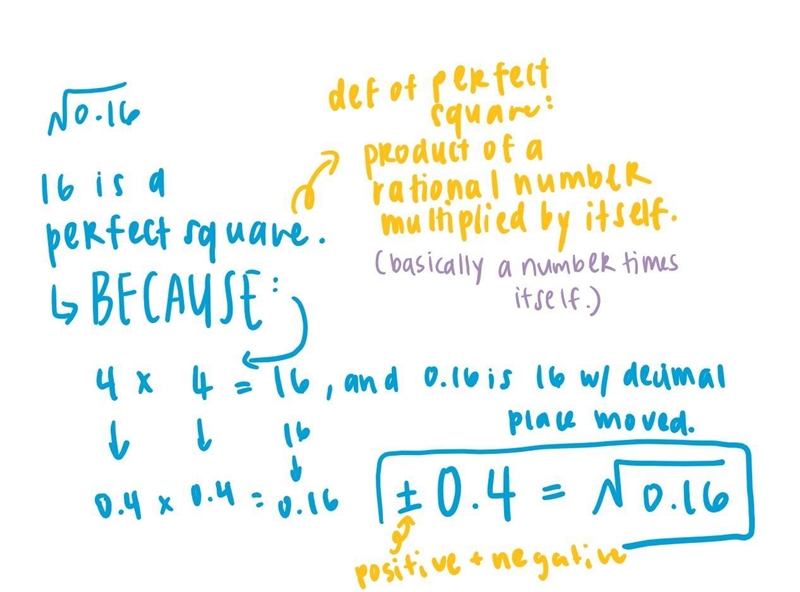 √0.16
16 is a
perfect square.
↳ BECAUSE:
def of perfect
square:
product of a
rational number
multiplied by itself.
(basically a number times
itself.)
4 x 4 = 16, and 0.16 is 16 w/ decimal
place moved.
↓ ↓ 16
↓
0.4 x 0.4 = 0.16
± 0.4 = √0.16
positive + negative